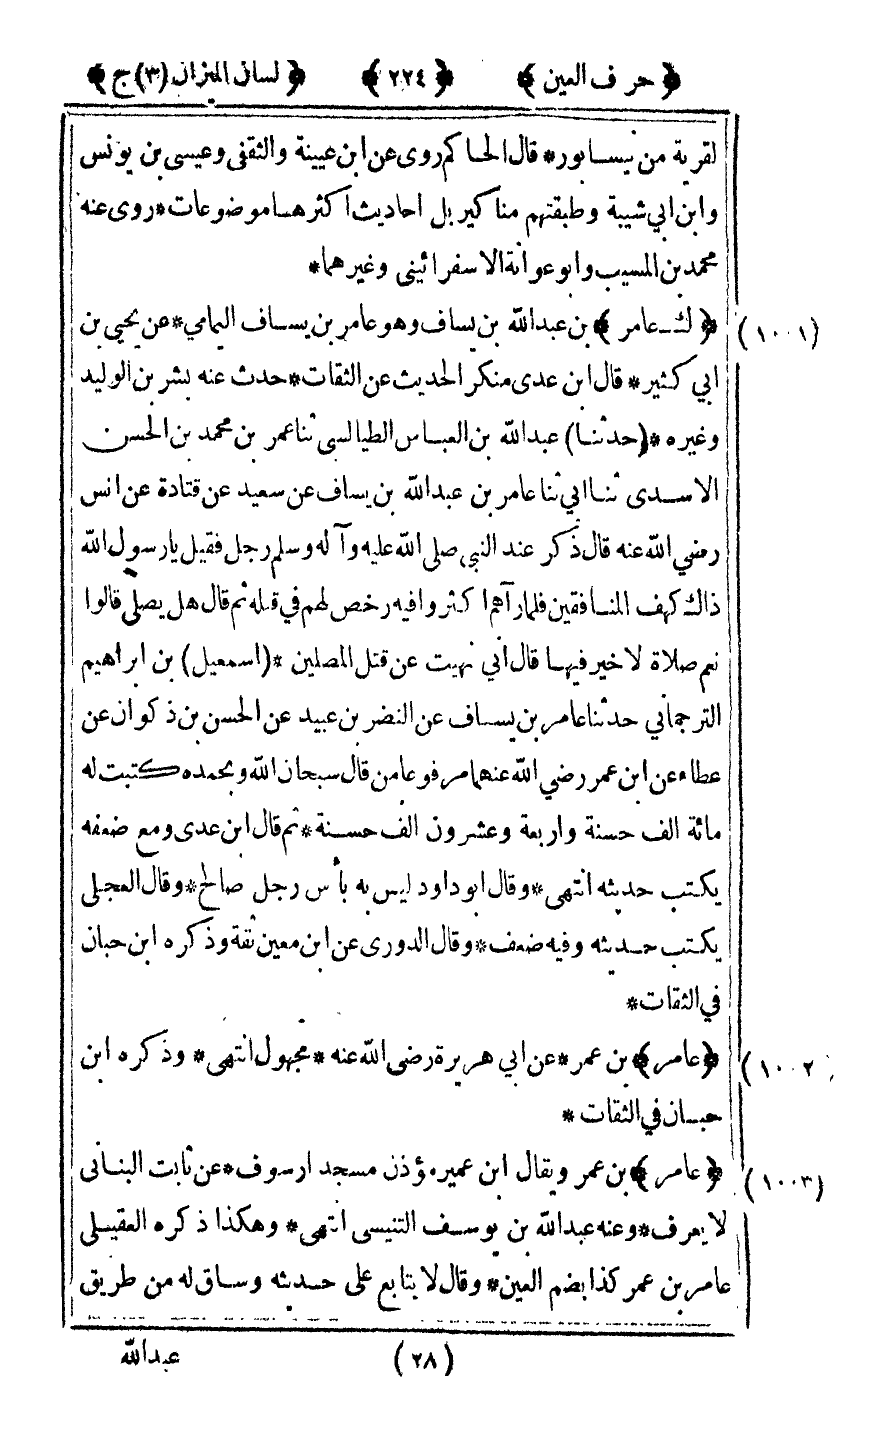 ﴿ حرف العين ﴾ ﴿ ٢٢٤ ﴾ ﴿ لسان الميزان (٣) ج ﴾
لقرية من نيسابور * قال الحاكم روى عن ابن عيينة والثقفى وعيسى بن يونس
وابن ابي شيبة وطبقتهم مناكير بل احاديث اكثرها موضوعات * روى عنه
محمد بن المسيب وابو عوانة الاسفرائيني وغيرهما *
﴿ ك ـ عامر ﴾ بن عبدالله بن يساف وهو عامر بن يساف اليمامي * عن يحيى بن (١٠٠١)
ابي كثير * قال ابن عدى منكر الحديث عن الثقات * حدث عنه بشر بن الوليد
وغيره * (حدثنا) عبدالله بن العباس الطيالسى ثنا عمر بن محمد بن الحسن
الاسدى ثنا ابي ثنا عامر بن عبدالله بن يساف عن سعيد عن قتادة عن انس
رضي الله عنه قال ذكر عند النبي صلى الله عليه وآله وسلم رجل فقيل يارسول الله
ذاك كهف المنافقين فلما رآهم اكثروا فيه رخص لهم في قتله ثم قال هل يصلى قالوا
نعم صلاة لا خير فيها قال اني نهيت عن قتل المصلين * (اسمعيل) بن ابراهيم
الترجماني حدثنا عامر بن يساف عن النضر بن عبيد عن الحسن بن ذكوان عن
عطاء عن ابن عمر رضي الله عنهما مرفوعا من قال سبحان الله وبحمده كتبت له
مائة الف حسنة واربعة وعشرون الف حسنة * ثم قال ابن عدى ومع ضعفه
يكتب حديثه انتهى * وقال ابو داود ليس به بأس رجل صالح * وقال العجلى
يكتب حديثه وفيه ضعف * وقال الدورى عن ابن معين ثقة وذكره ابن حبان
في الثقات *
﴿ عامر ﴾ بن عمر * عن ابي هريرة رضى الله عنه * مجهول انتهى * وذكره ابن (١٠٠٢)
حبان في الثقات *
﴿ عامر ﴾ بن عمر ويقال ابن عمير مؤذن مسجد ارسوف * عن ثابت البنانى (١٠٠٣)
لا يعرف * وعنه عبدالله بن يوسف التنيسى انتهى * وهكذا ذكره العقيلى
عامر بن عمر كذا بضم العين * وقال لا يتابع على حديثه وساق له من طريق
(٢٨) عبدالله